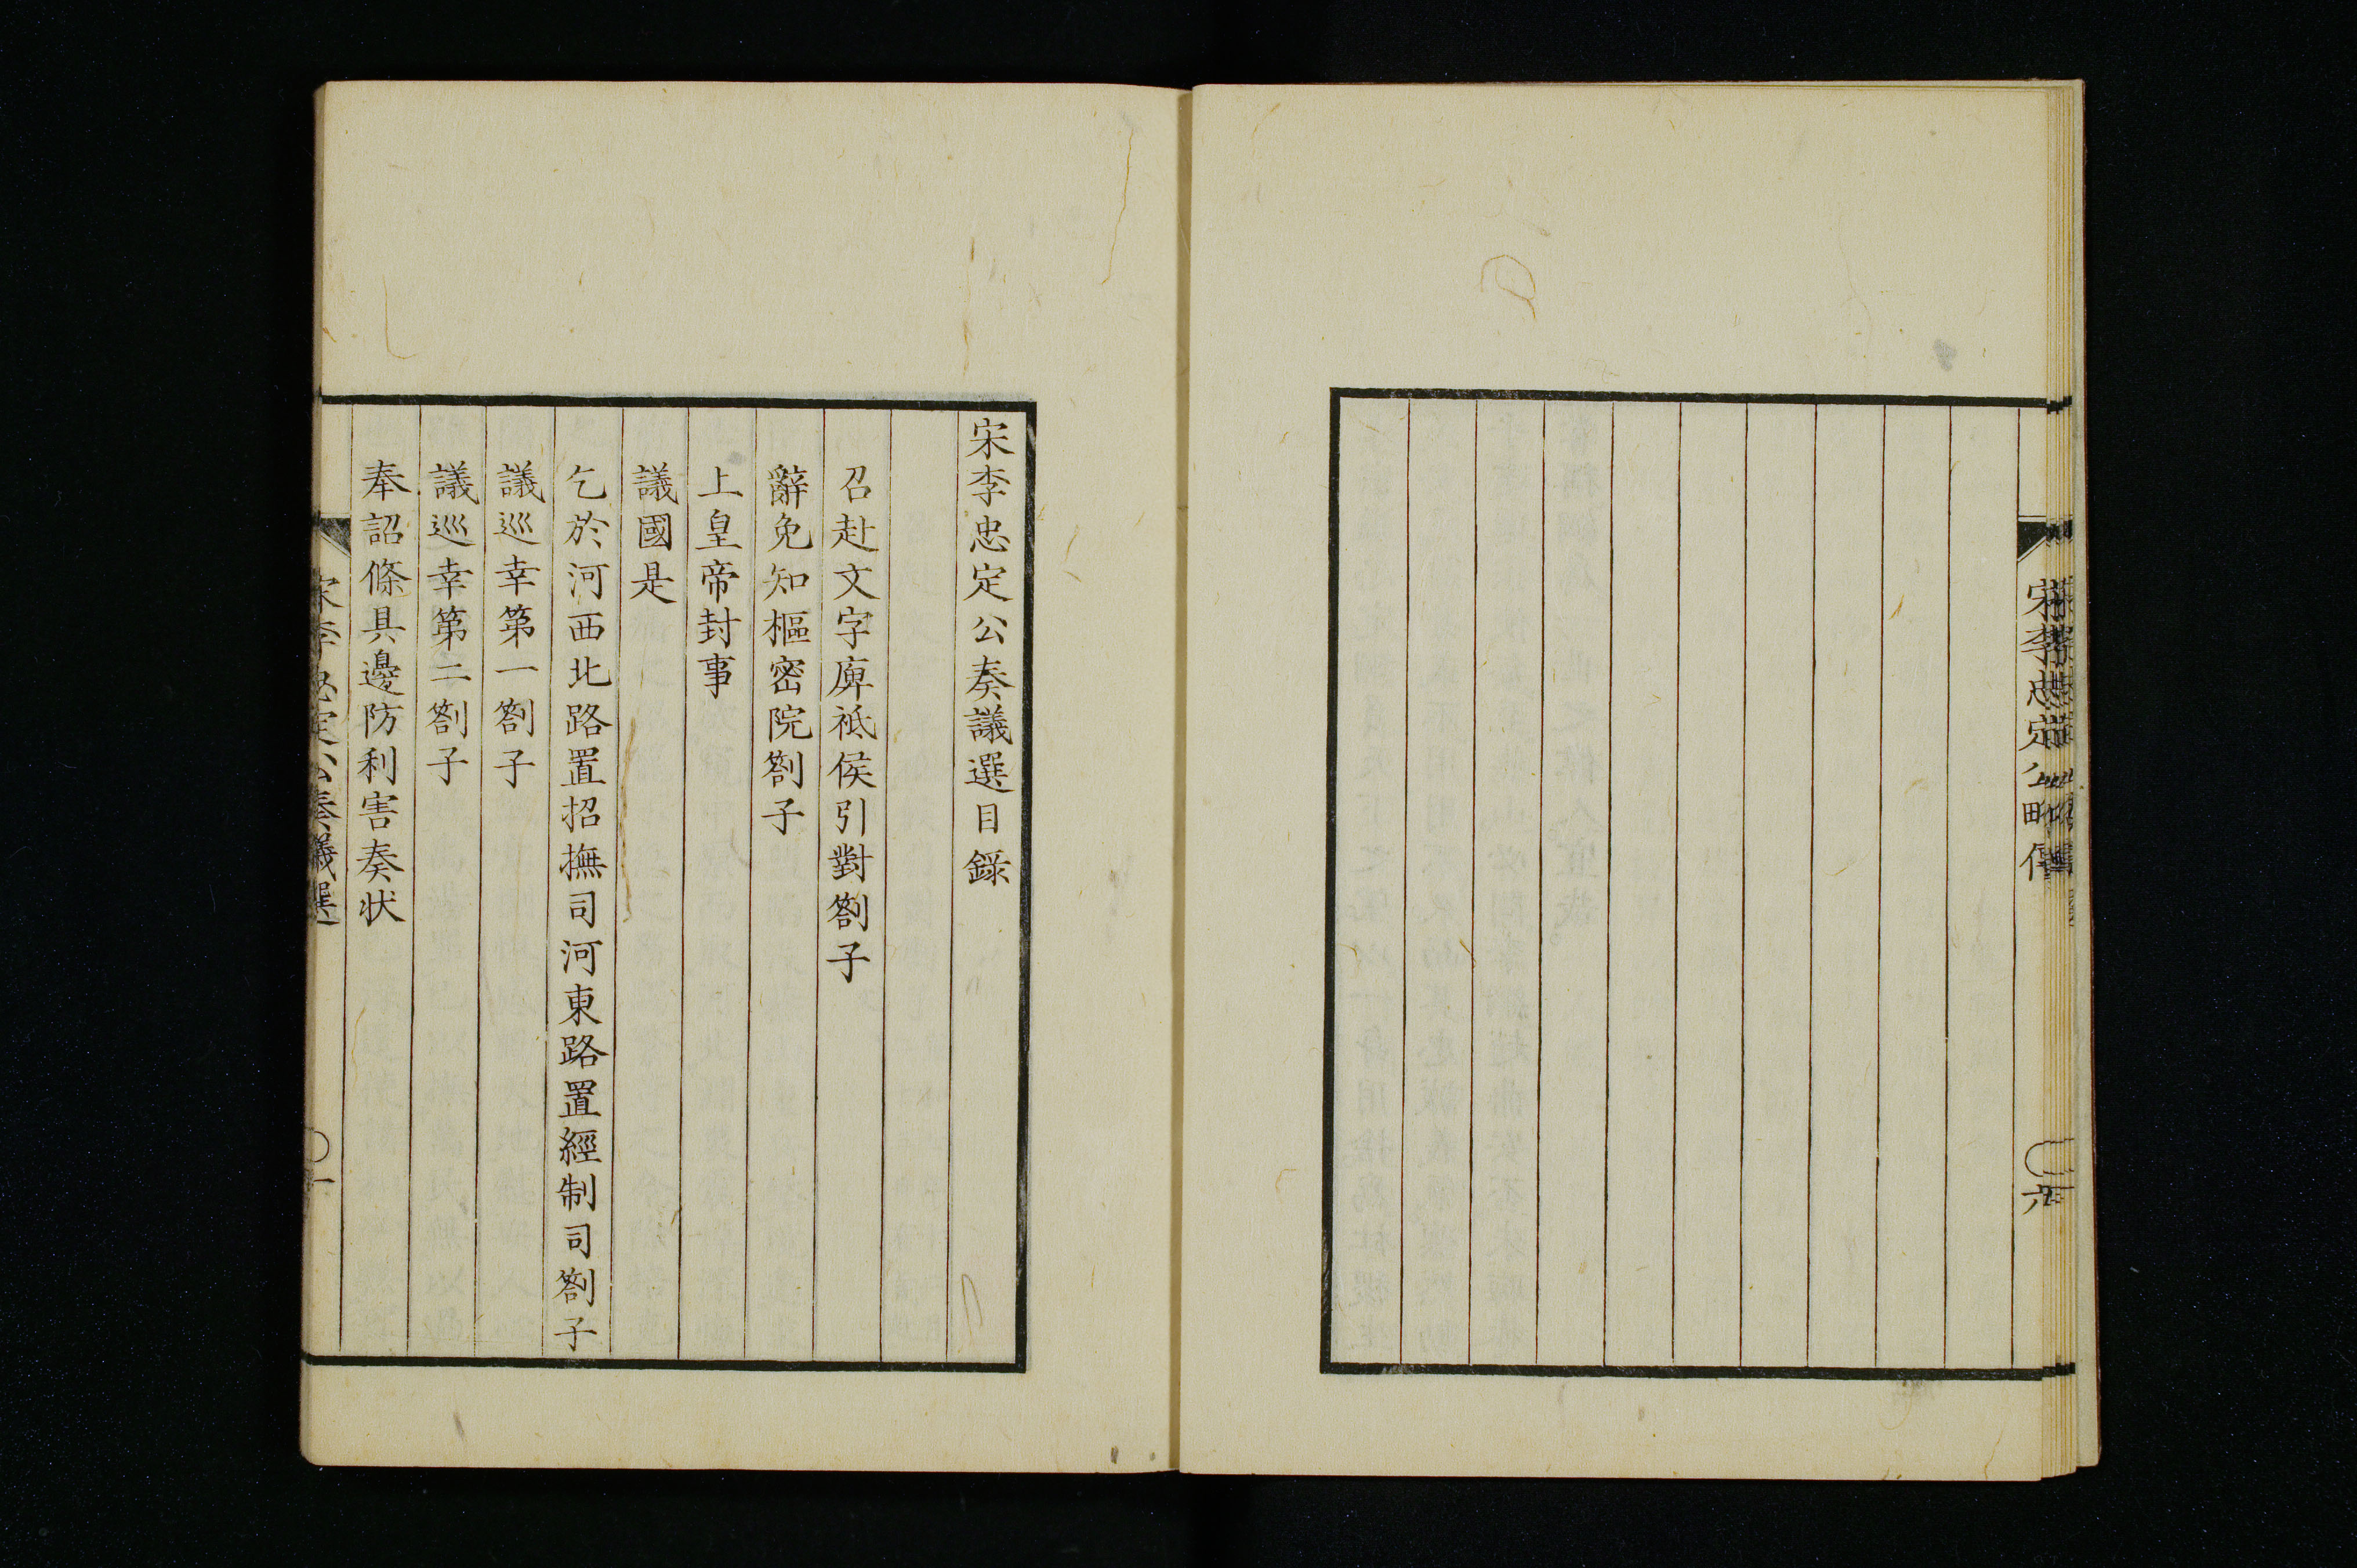 宋李忠定公略傳
六
宋李忠定公奏議選目錄
召赴文字庫祗侯引對劄子
辭免知樞密院劄子
上皇帝封事
議國是
乞於河西北路置招撫司河東路置經制司劄子
議巡幸第一劄子
議巡幸第二劄子
奉詔條具邊防利害奏狀
宋李忠定公奏議選
一